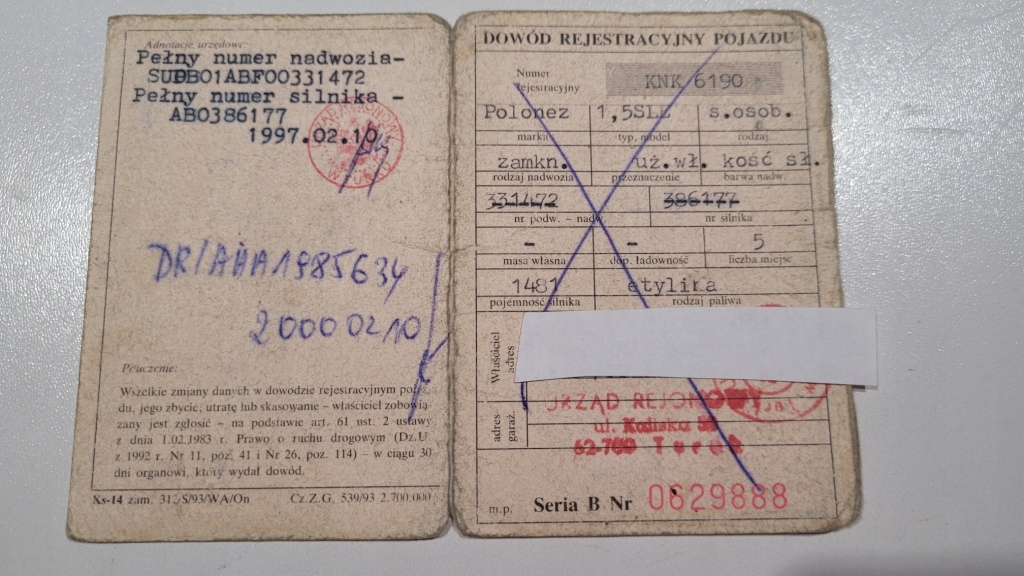 Adnotacje urzędowe
Pełny numer nadwozia-
SUPB01ABF00331472
Pełny numer silnika -
AB0386177
1997.02.10
DR/AAA1985634
20000210
Pouczenie:
Wszelkie zmiany danych w dowodzie rejestracyjnym poja-
du, jego zbycie, utratę lub skasowanie – właściciel zobowią-
zany jest zgłosić – na podstawie art. 61 ust. 2 ustawy
z dnia 1.02.1983 r. Prawo o ruchu drogowym (Dz.U.
z 1992 r. Nr 11, poz. 41 i Nr 26, poz. 114) – w ciągu 30
dni organowi, który wydał dowód.
Ks-14 zam. 312/S/93/WA/On Cz.Z.G. 539/93 2.700.000
DOWÓD REJESTRACYJNY POJAZDU
Numer
rejestracyjny
KNK 6190
Polonez 1,5SLE s.osob.
marka typ, model rodzaj
zamkn. uż.wł. kość sł.
rodzaj nadwozia przeznaczenie barwa nadw.
331472 386177
nr podw. – nadw. nr silnika
- - 5
masa własna dop. ładowność liczba miejsc
1481 etylina
pojemność silnika rodzaj paliwa
Właściciel
adres
adres
garaż.
URZĄD REJONOWY
ul. Kaliska
62-700 Turek
m.p. Seria B Nr 0629888